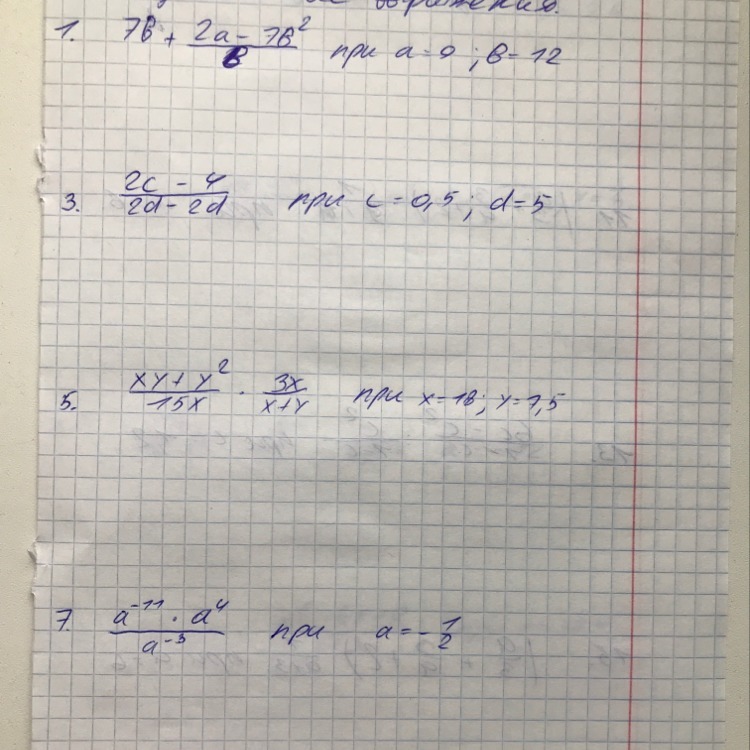 выражения.
1. 7в + (2а - 7в²)/в при а = 9; в = 12
3. (2c - 4)/(2d - 2d) при c = 0,5; d = 5
5. (xy + y²)/(15x) · (3x)/(x+y) при x = 18; y = 7,5
7. (a⁻¹¹ · a⁴)/(a⁻³) при a = -1/2